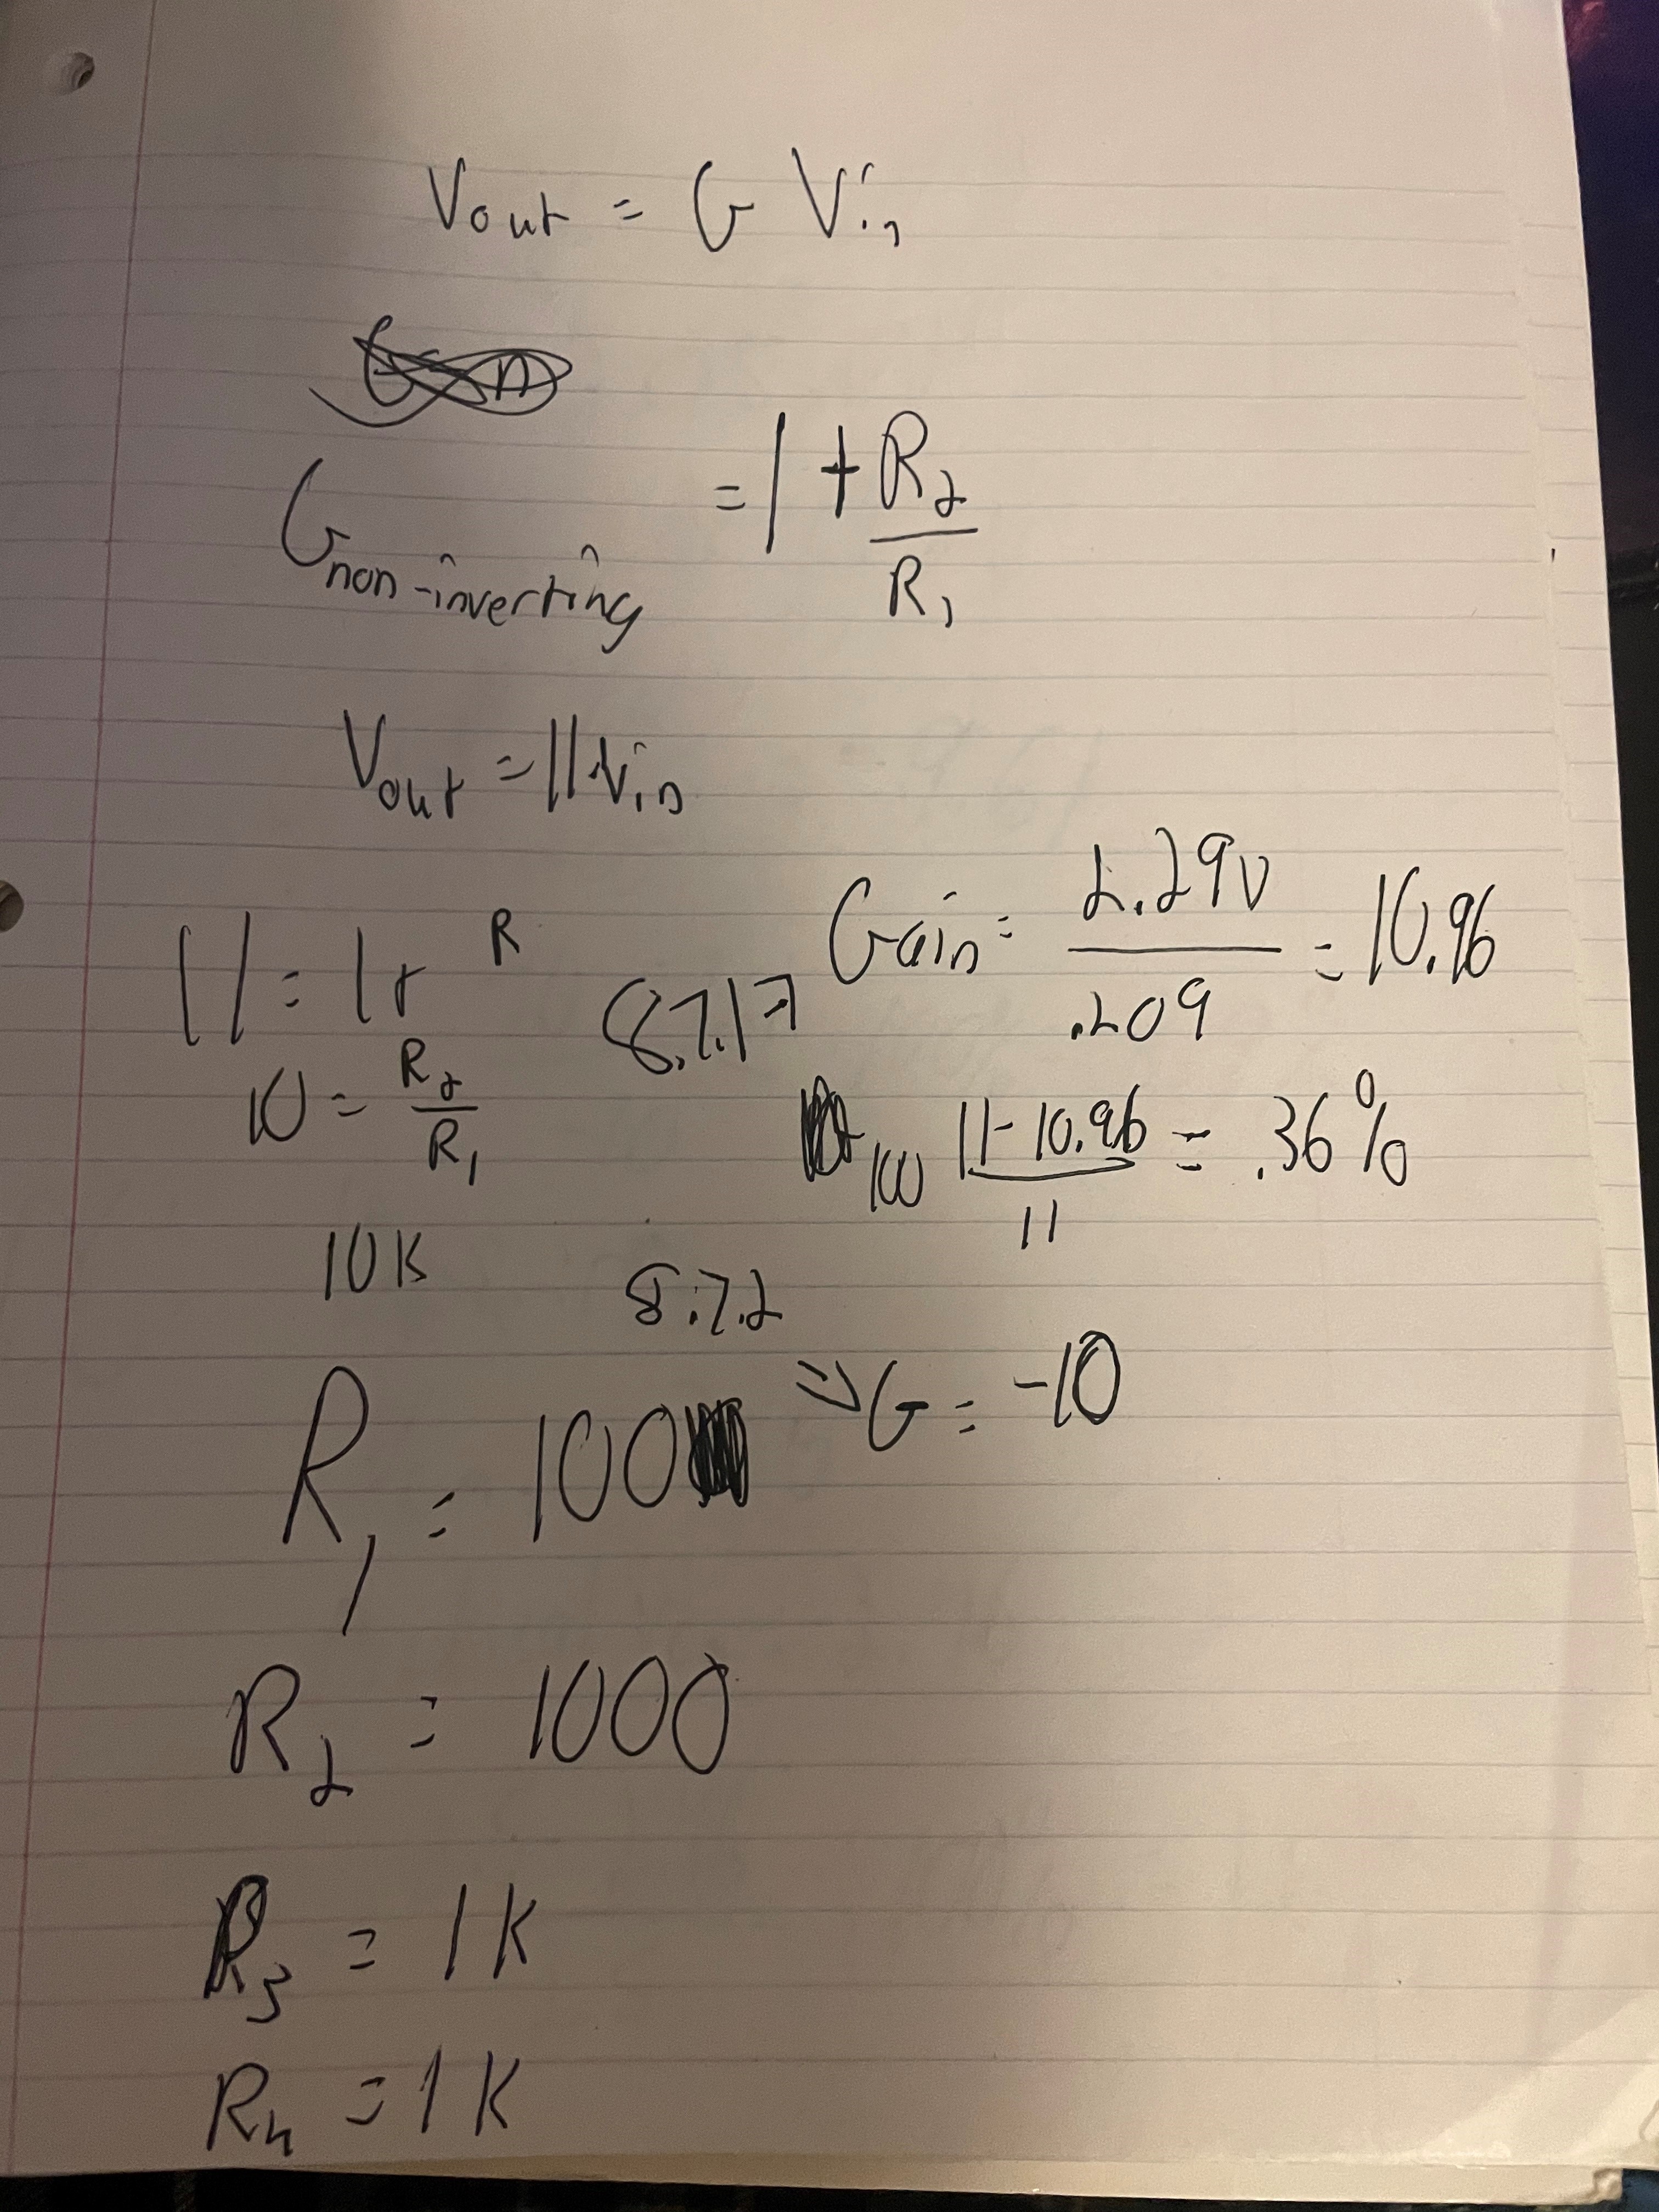 Vout = G Vin
G non-inverting = 1 + R2/R1
Vout = 11·Vin
11 = 1+ R
8.7.17
Gain = 2.29V/.209 = 10.96
10 = R2/R1
100 11-10.96/11 = .36%
10K
8.7.2
=> G = -10
R1 = 100
R2 = 1000
R3 = 1K
R4 = 1K